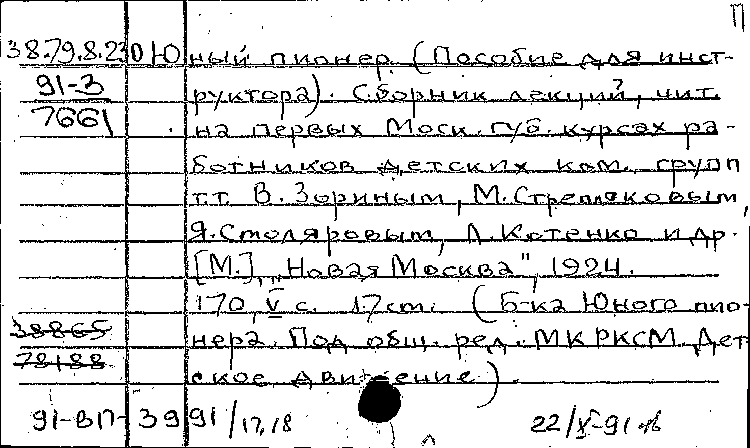 П
38.79.8.230 Юный пионер. (Пособие для инст-
91-3 руктора). Сборник лекций, чит.
7661 на первых Моск. губ. курсах ра-
ботников детских ком. групп
т.т. В. Зориным, М. Стремяковым,
Я. Столяровым, Л. Котенко и др.
[М.], „Новая Москва", 1924.
170, V с. 17 cm. (Б-ка Юного пио-
38865 нера. Под общ. ред. МК РКСМ. Дет-
78188 ское движение).
91-ВП-39 91/17,18 22/X-91